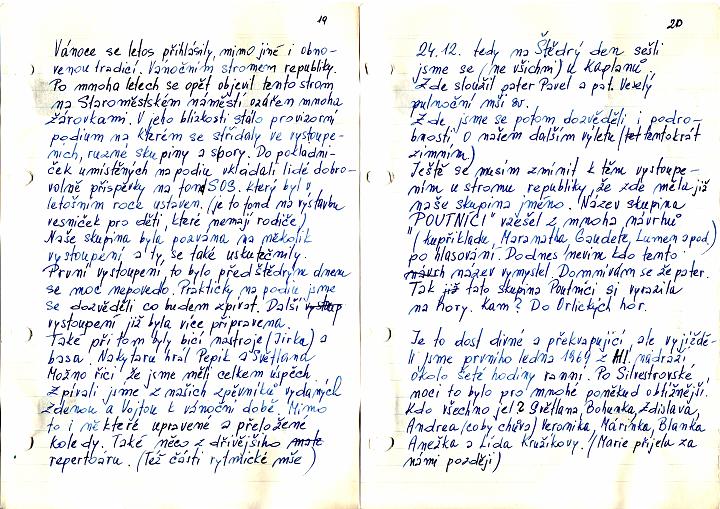 19
Vánoce se letos přihlásily, mimo jiné i obno-
venou tradicí, Vánočním stromem republiky.
Po mnoha letech se opět objevil tento strom
na Staroměstském náměstí ozářem mnoha
žárovkami. V jeho blízkosti stálo provizorní
podium na kterém se střídaly ve vystoupe-
ních, ruzné skupiny a spory. Do pokladni-
ček umistěných na podiu vkládali lidé dobro-
volné příspěvky na fond SOS. který byl v
letošním roce ustaven, (je to fond na výstavbu
vesniček pro děti, které nemají rodiče)
Naše skupina byla pozvána na několik
vystoupení a ty, se také uskutečnily.
První vystoupení, to bylo před štědrým dnem
se moc nepovedo. Prakticky na podiu jsme
se dozvěděli co budem zpívat. Další vystup
vystoupení již byla více připravena.
Také při tom byly bicí nástroje (Jirka) a
basa. Na kytaru hrál Pepík a Světlana
Možno říci, že jsme měli celkem úspěch
Zpívali jsme z našich zpěvníků vydaných
Zdenou a Vojtou k vánoční době. Mimo
to i některé upravené a přeložené
koledy. Také něco z dřívějšího
repertoáru. (Též části rytmické mše)
20
24.12. tedy na Štědrý den sešli
jsme se (ne všichni) u Kaplanů
Zde sloužil pater Pavel a pat. Veselý
pulnoční mši sv.
Zde jsme se potom dozvěděli i podro-
bnosti o našem dalším výletu (tentokrát
zimním)
Ještě se musím zmínit k těm vystoupe-
ním u stromu republiky, že zde měla již
naše skupina jméno. Název skupina
"POUTNÍCI" vzešel z mnoha návrhů
(kupříkladu, Maranatha Gaudete, Lumen apod.)
po hlasování. Dodnes nevím kdo tento
návrh název vymyslel. Domnívám se že pater.
Tak již tato skupina Poutníci si vyrazila
na hory. Kam? Do Orlických hor.
Je to dost divné a překvapující, ale vyjížde-
li jsme prvního ledna 1969 z Hl. nádraží
okolo šesté hodiny ranní. Po Silvestrovské
noci to bylo pro mnohé poněkud obtížnější.
Kdo všechno jel? Světlana, Bohunka, Zdislava,
Andrea (coby chůva) Veronika, Márinka, Blanka
Anežka a Lída Kružíkovy. (Marie přijela za
námi později)